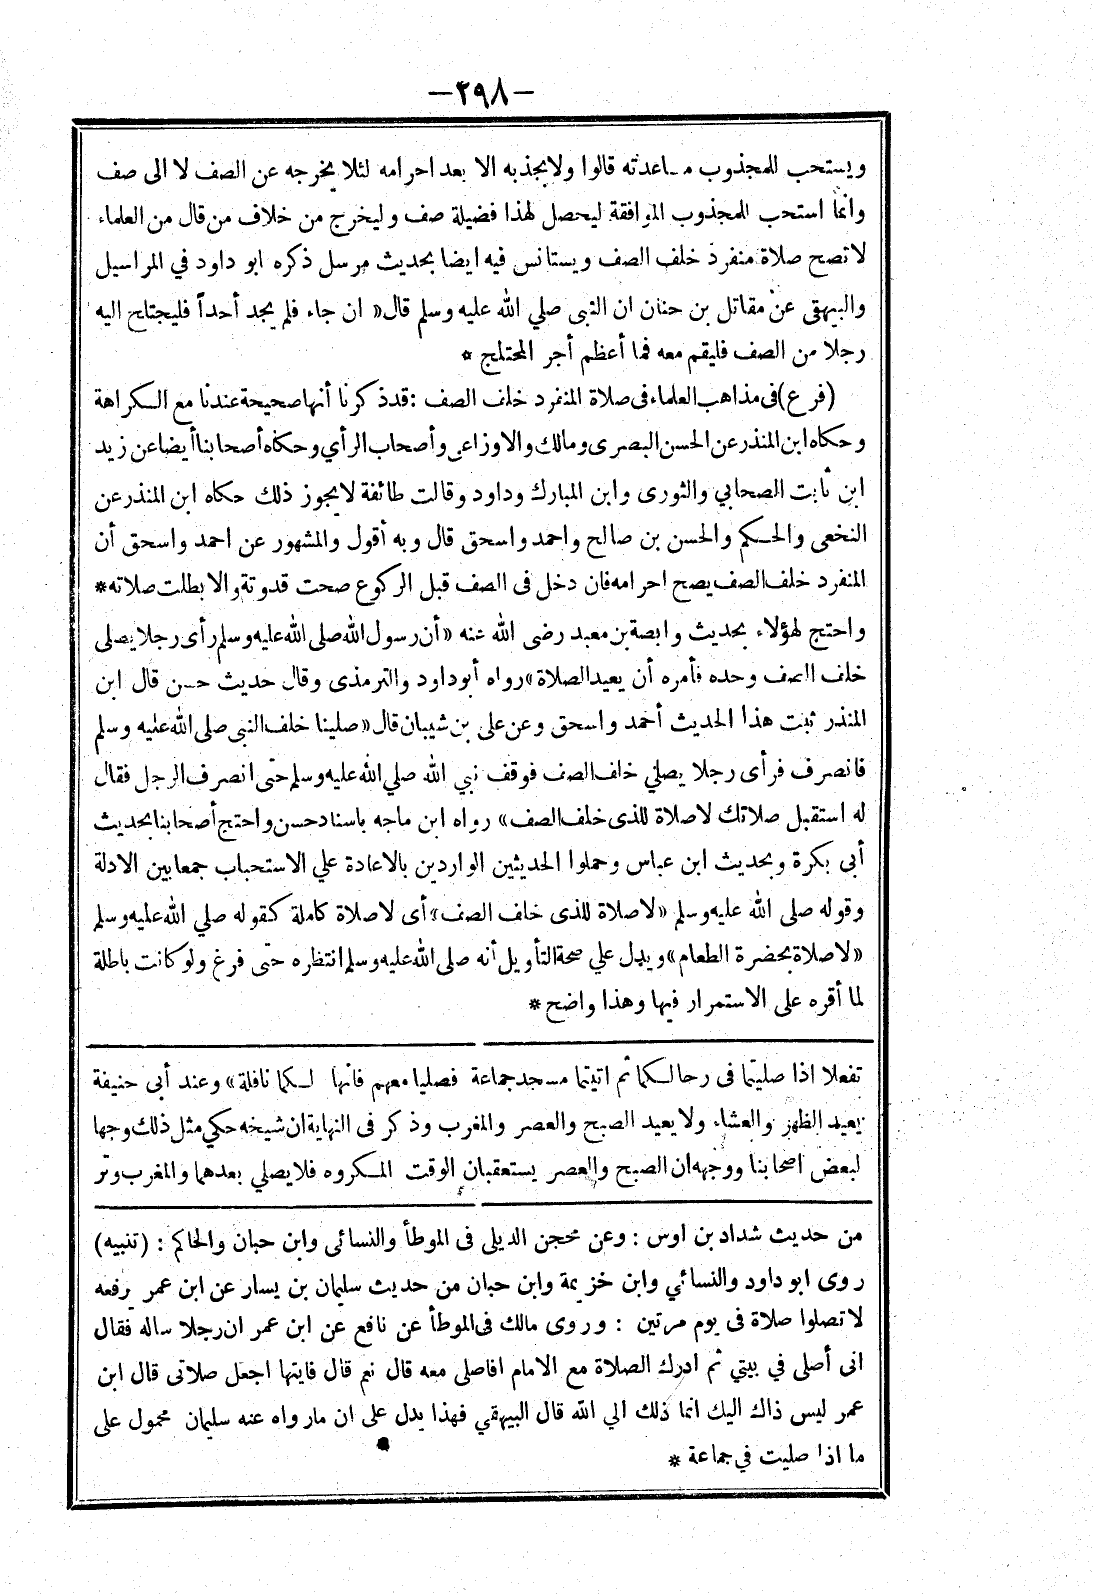 -٢٩٨-
ويستحب للمجذوب مساعدته قالوا ولا يجذبه الا بعد احرامه لئلا يخرجه عن الصف لا الى صف
وانما استحب للمجذوب الموافقة ليحصل لهذا فضيلة صف وليخرج من خلاف من قال من العلماء
لا تصح صلاة منفرد خلف الصف ويستانس فيه ايضا بحديث مرسل ذكره ابو داود في المراسيل
والبيهقى عن مقاتل بن حنان ان النبى صلي الله عليه وسلم قال « ان جاء فلم يجد أحداً فليجتلح اليه
رجلا من الصف فليقم معه فما أعظم أجر المختلج *
(فرع) فى مذاهب العلماء فى صلاة المنفرد خلف الصف : قد ذكرنا أنها صحيحة عندنا مع الكراهة
وحكاه ابن المنذر عن الحسن البصرى ومالك والاوزاعى وأصحاب الرأي وحكاه أصحابنا أيضا عن زيد
ابن ثابت الصحابي والثورى وابن المبارك وداود وقالت طائفة لا يجوز ذلك حكاه ابن المنذر عن
النخعى والحكم والحسن بن صالح واحمد واسحق قال وبه أقول والمشهور عن احمد واسحق أن
المنفرد خلف الصف يصح احرامه فان دخل فى الصف قبل الركوع صحت قدوته والا بطلت صلاته *
واحتج لهؤلاء بحديث وابصة بن معبد رضى الله عنه « أن رسول الله صلى الله عليه وسلم رأى رجلا يصلى
خلف الصف وحده فأمره أن يعيد الصلاة » رواه أبو داود والترمذى وقال حديث حسن قال ابن
المنذر ثبت هذا الحديث أحمد واسحق وعن على بن شيبان قال « صلينا خلف النبى صلى الله عليه وسلم
فانصرف فرأى رجلا يصلي خلف الصف فوقف نبي الله صلي الله عليه وسلم حتى انصرف الرجل فقال
له استقبل صلاتك لا صلاة للذى خلف الصف » رواه ابن ماجه باسناد حسن واحتج أصحابنا بحديث
أبي بكرة وبحديث ابن عباس وحملوا الحديثين الواردين بالاعادة علي الاستحباب جمعا بين الادلة
وقوله صلى الله عليه وسلم « لا صلاة للذى خلف الصف » أى لا صلاة كاملة كقوله صلي الله عليه وسلم
« لا صلاة بحضرة الطعام » ويدل علي صحة التأويل أنه صلى الله عليه وسلم انتظره حتى فرغ ولو كانت باطلة
لما أقره على الاستمرار فيها وهذا واضح *
تفعلا اذا صليتما فى رحالكما ثم اتيتما مسجد جماعة فصليا معهم فانها لكما نافلة » وعند أبى حنيفة
يعيد الظهر والعشاء ولا يعيد الصبح والعصر والمغرب وذكر فى النهاية ان شيخه حكي مثل ذلك وجها
لبعض اصحابنا ووجهه ان الصبح والعصر يستعقبان الوقت المكروه فلا يصلي بعدهما والمغرب وتر
من حديث شداد بن اوس : وعن محجن الديلى فى الموطأ والنسائى وابن حبان والحاكم : (تنبيه)
روى ابو داود والنسائي وابن خزيمة وابن حبان من حديث سليمان بن يسار عن ابن عمر يرفعه
لا تصلوا صلاة فى يوم مرتين : وروى مالك فى الموطأ عن نافع عن ابن عمر ان رجلا ساله فقال
انى أصلى في بيتي ثم ادرك الصلاة مع الامام افاصلى معه قال نعم قال فايتها اجعل صلاتى قال ابن
عمر ليس ذاك اليك انما ذلك الي الله قال البيهقي فهذا يدل على ان مارواه عنه سليمان محمول على
ما اذا صليت في جماعة *